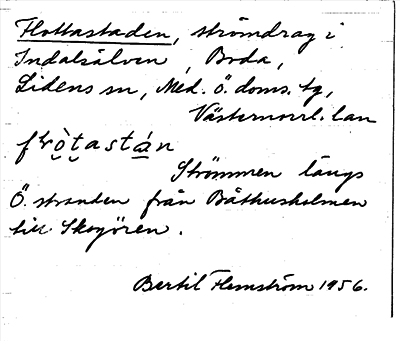 Flottastaden, strömdrag i
Indalsälven, Boda,
Lidens sn, Med. ö. doms. tg,
Västernorrl. län
Strömmen längs
Ö. stranden från Båthusholmen
till Skogören.
Bertil Flemström 1956.